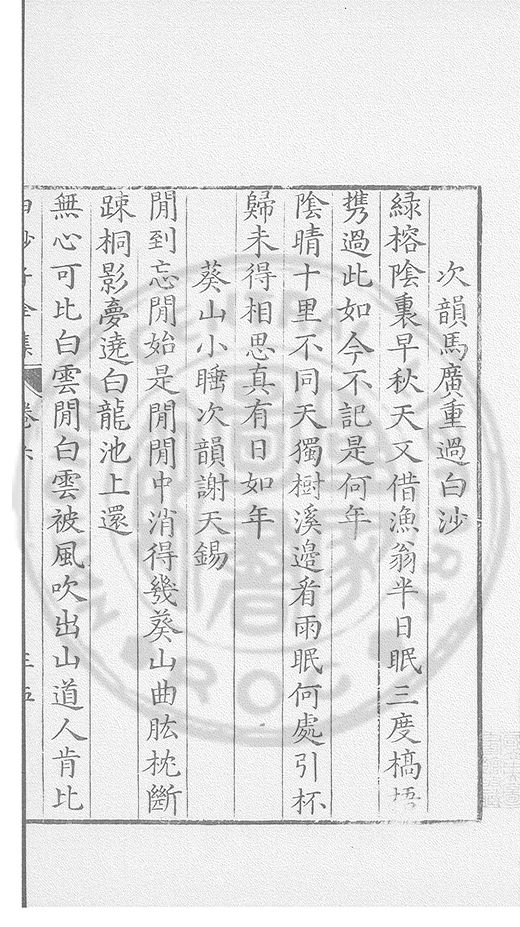 次韻馬廣重過白沙
綠榕陰裏早秋天又借漁翁半日眠三度槁梧
携過此如今不記是何年
陰晴十里不同天獨樹溪邊看雨眠何處引杯
歸未得相思真有日如年
葵山小睡次韻謝天錫
閒到忘閒始是閒閒中消得幾葵山曲肱枕斷
踈桐影夢遶白龍池上還
無心可比白雲閒白雲被風吹出山道人肯比
白沙子全集 卷六